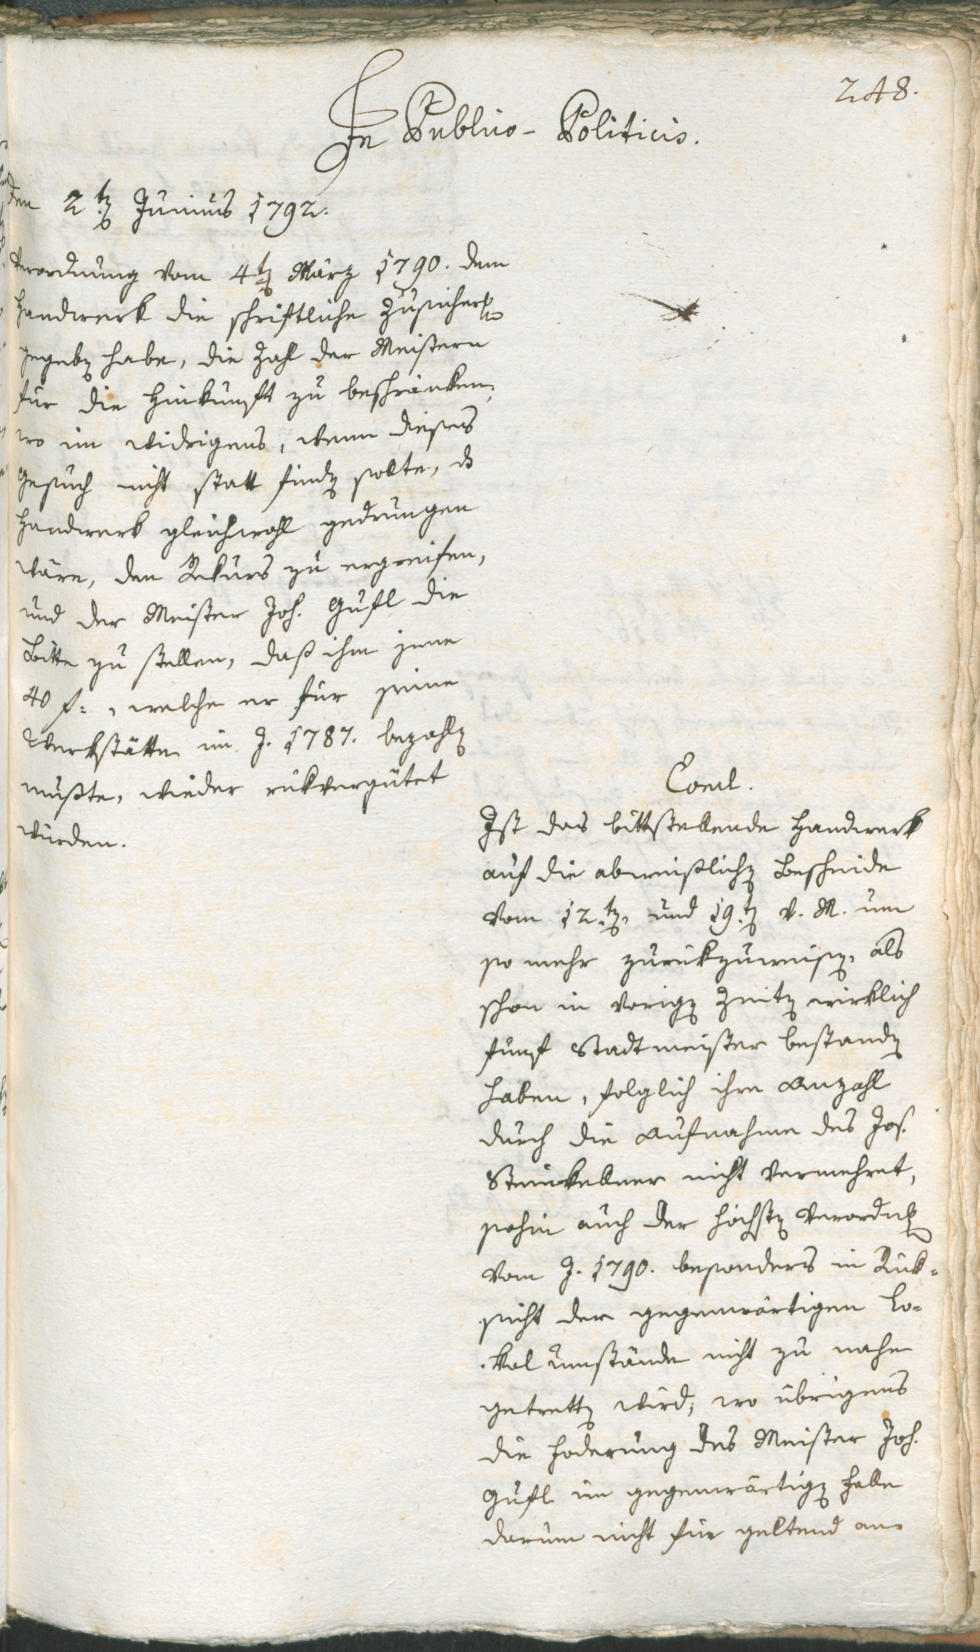 248.
In Publico-Politicis.
den 2t Junius 1792.
Verordnung vom 4t März 1790. dem
Handwerk die schriftliche Zusicher
gegeb habe, die Zahl der Meistern
für die Hinkunft zu beschränken,
wo im widrigens, wenn dieses
Gesuch nicht statt find sollte, ds
Handwerk gleichwohl gedrungen
wäre, den Rekurs zu ergreifen,
und der Meister Joh. Gufl die
Bitte zu stellen, daß ihm jene
40 f:, welche er für seine
Werkstätte im J. 1787. bezahl
mußte, wieder rükvergütet
würden.
Concl.
Ist das bittstellende Handwerk
auf die abweißlich Bescheide
vom 12t. und 19t v. M. um
so mehr zurükzuweis, als
schon in vorig Zeit wirklich
fünf Stadtmeister bestand
haben, folglich ihre Anzahl
durch die Aufnahme des Jos.
Steinkellner nicht vermehret,
sohin auch der höchst Verordn
vom J. 1790. besonders in Rük-
sicht der gegenwärtigen Lo-
kal umstände nicht zu nahe
getrett wird; wo übrigens
die Foderung des Meister Joh.
Gufl im gegenwärtig Falle
darum nicht für geltend an-